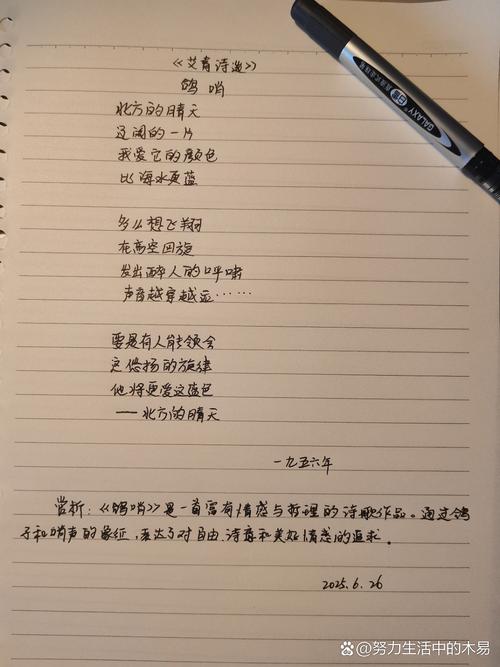 《艾青诗选》
鸽哨
北方的晴天
辽阔的一片
我爱它的颜色
比海水更蓝
多么想飞翔
在高空回旋
发出醉人的呼啸
声音越穿越远……
要是有人能领会
这悠扬的旋律
他将更爱这蓝色
——北方的晴天
一九五六年
赏析:《鸽哨》是一首富有情感与哲理的诗歌作品。通过鸽
子和哨声的象征,表达了对自由、诗意和美好情感的追求。
2025.6.26
GALAXY
努力生活中的木易